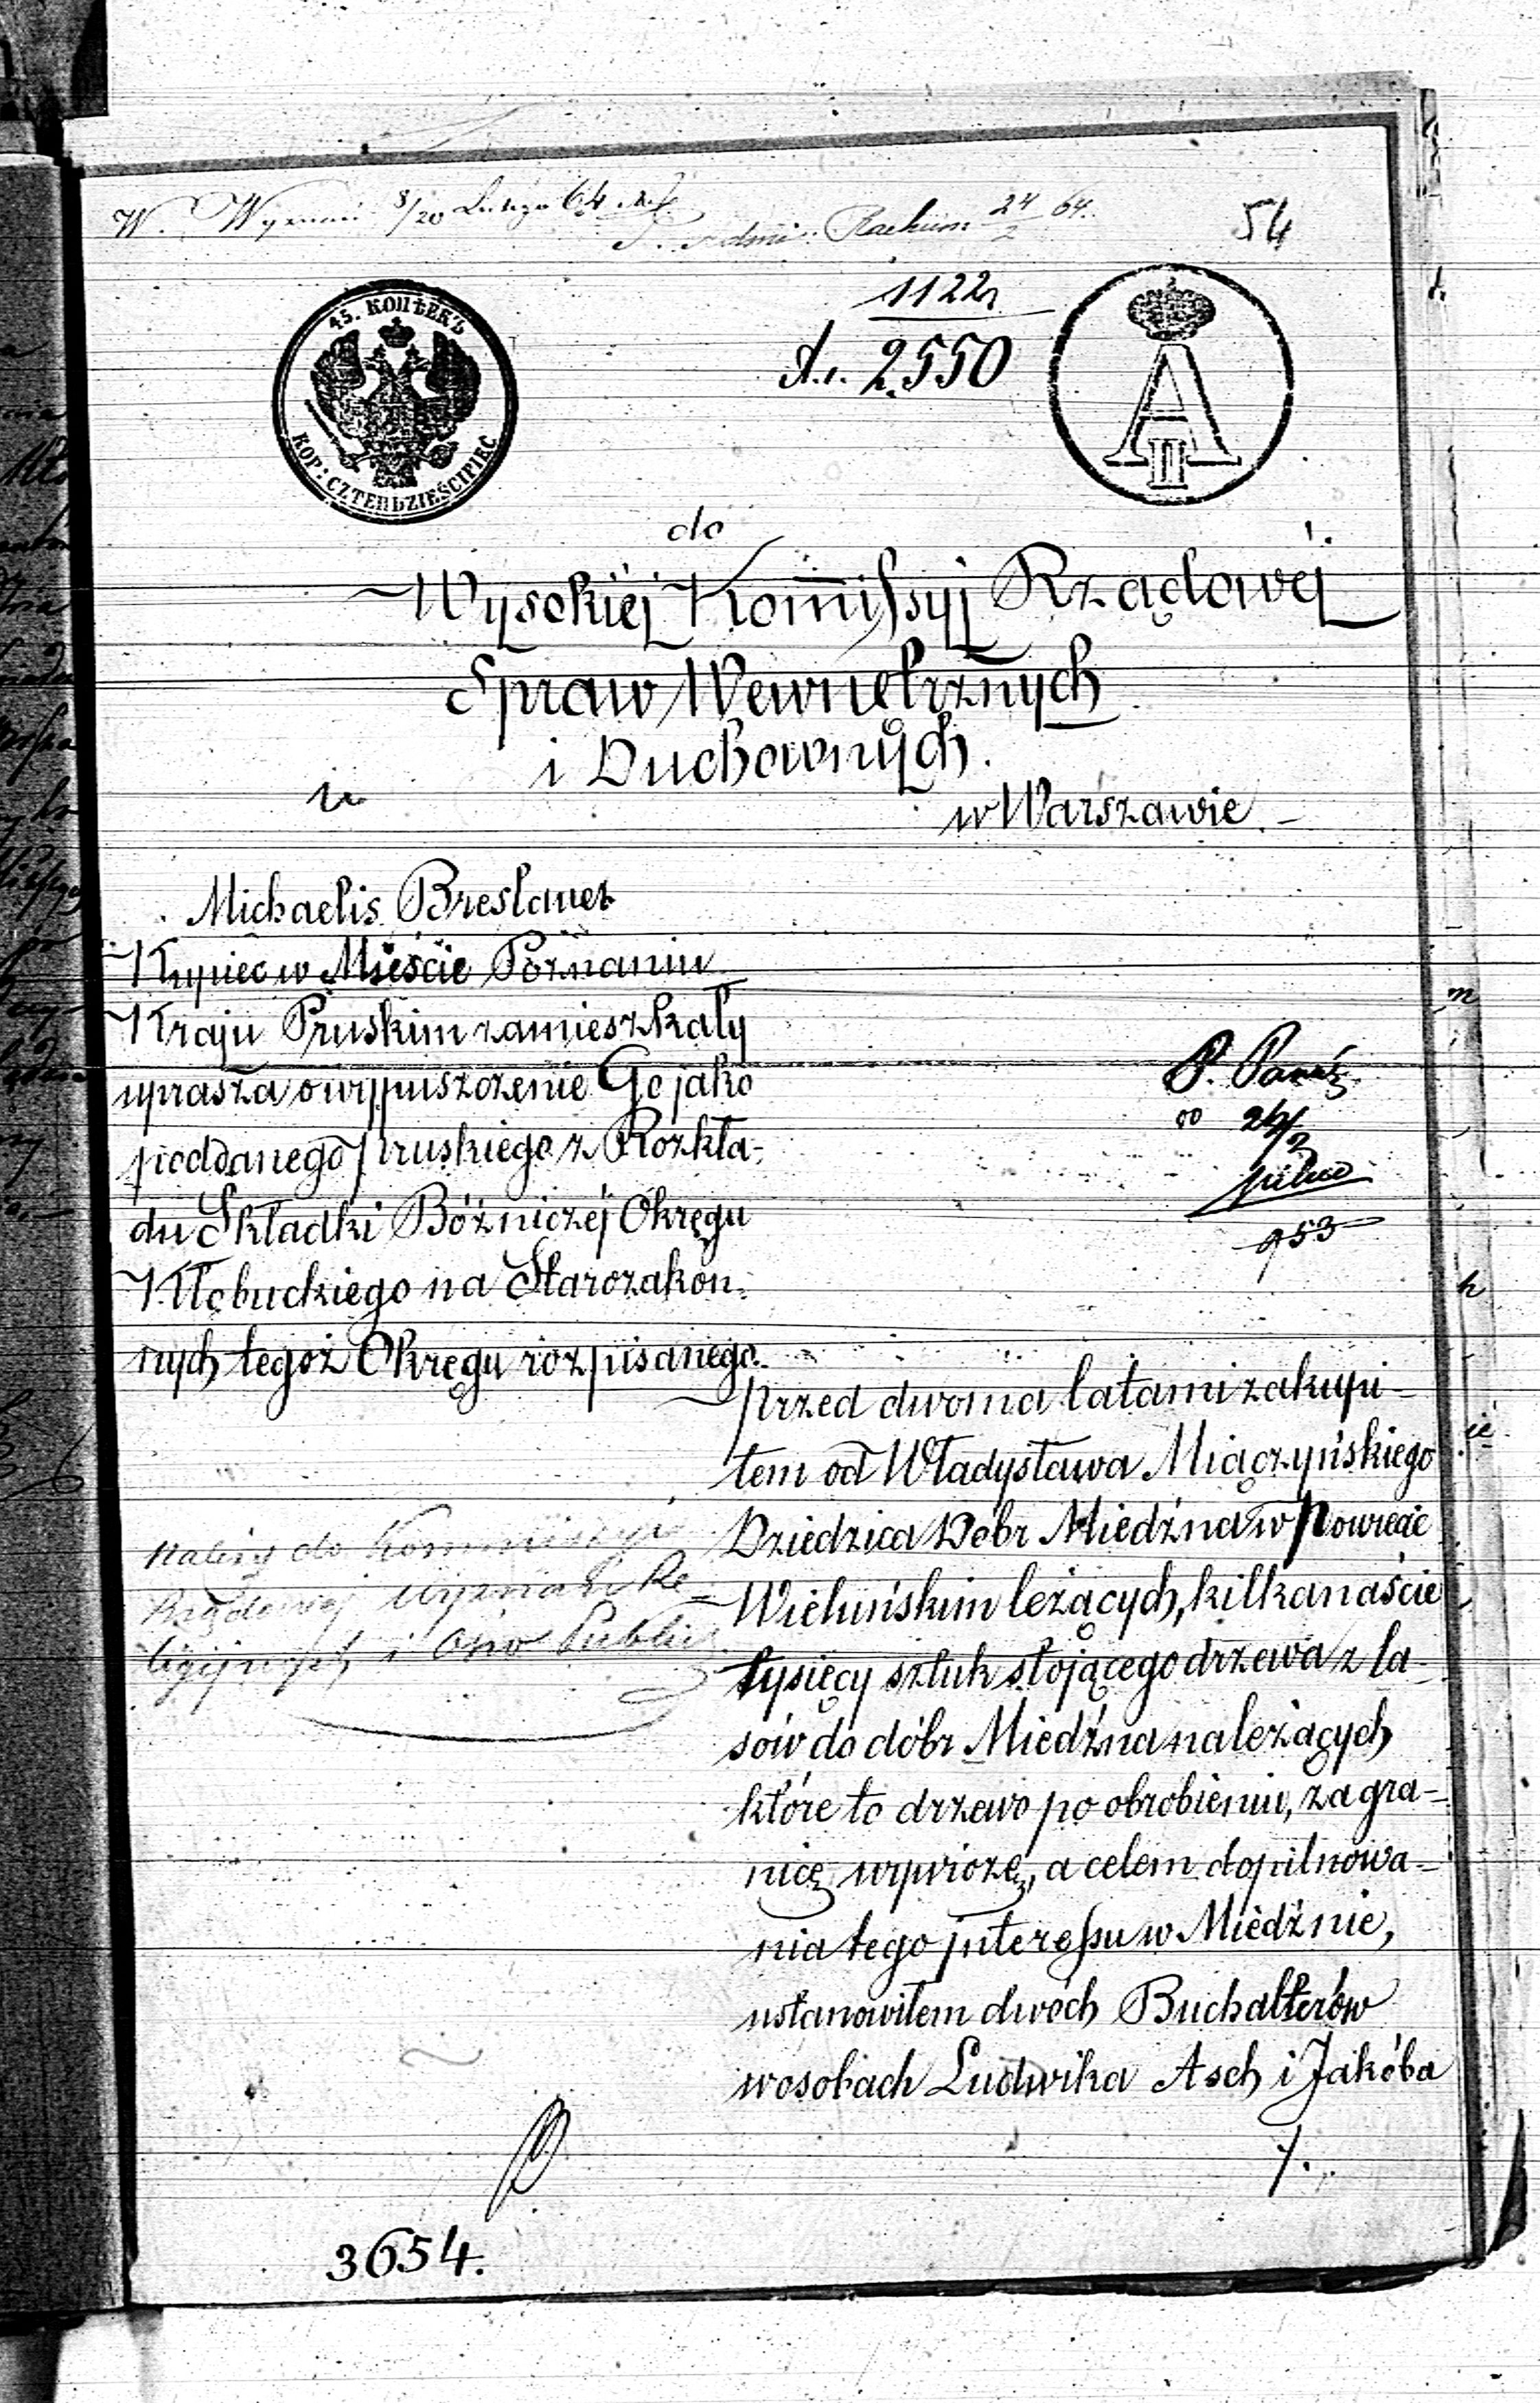 W. Wyznań 8/20 Lutego 64
Rachun 24/2 64.
54
1122
2550
45. КОПѢЕКЪ
KOP: CZTERDZIEŚCI PIĘĆ
A II
do
Wysokiéj Kommissyj Rządowéj
Spraw Wewnętrznych
i Duchownych.
w Warszawie.
Michaelis Breslauer
Kupiec w Mieście Poznaniu
Kraju Pruskim zamieszkały
uprasza o wypuszczenie Go jako
poddanego pruskiego z Rozkła-
du Składki Bóżniczéj Okręgu
Kłobuckiego na Starozakon-
nych tegoż Okręgu rozpisanego.
P.
26/2
pilno
953
przed dwoma latami zakupi-
łem od Władysława Miączyńskiego
Dziedzica Dóbr Miedźna w Powiecie
Wieluńskim leżących, kilkanaście
tysięcy sztuk stojącego drzewa z la-
sów do dóbr Miedźna należących
które to drzewo po obrobieniu, za gra-
nicę wywiozę, a celem dopilnowa-
nia tego jnteressu w Miedźnie,
ustanowiłem dwóch Buchalterów
w osobach Ludwika Asch i Jakóba
należy do Kommissyi
Rządowej Wyznań Re-
ligijnych i Ośw Public
/.
3654.